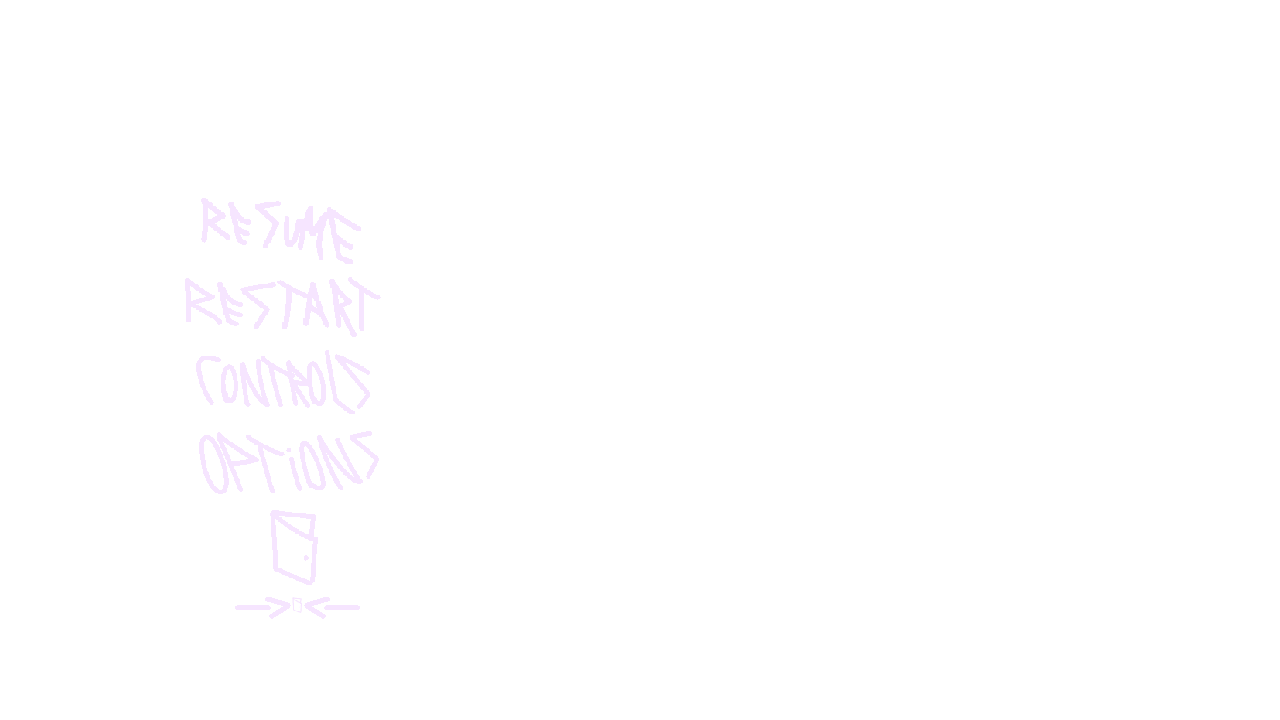 RESUME
RESTART
CONTROLS
OPTiONS